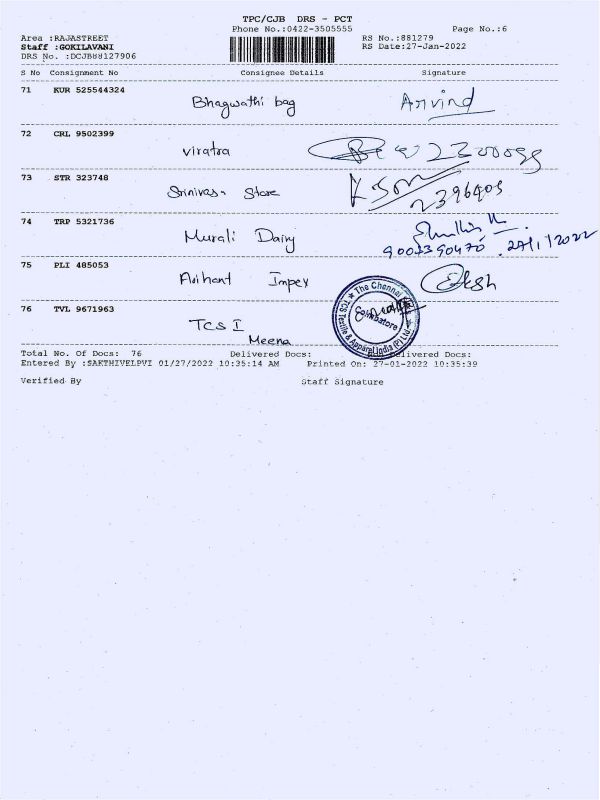 TPC/CJB DRS - PCT
Phone No.:0422-3505555
Page No.:6
Area :RAJASTREET
RS No.:881279
Staff :GOKILAVANI
RS Date:27-Jan-2022
DRS No. :DCJB88127906
S No Consignment No Consignee Details Signature
71 KUR 525544324 Bhagwathi bag Arvind
72 CRL 9502399 viratra
73 STR 323748 Srinivasn Store
2396403
74 TRP 5321736 Murali Dairy
9003390470 27/1/2022
75 PLI 485053 Arihant Impex
76 TVL 9671963 TCS I
Meena
The Chennai TCS Textile & Apparel India (P) Ltd.
Coimbatore
Total No. Of Docs: 76 Delivered Docs: Delivered Docs:
Entered By :SAKTHIVELPVI 01/27/2022 10:35:14 AM Printed On: 27-01-2022 10:35:39
Verified By Staff Signature